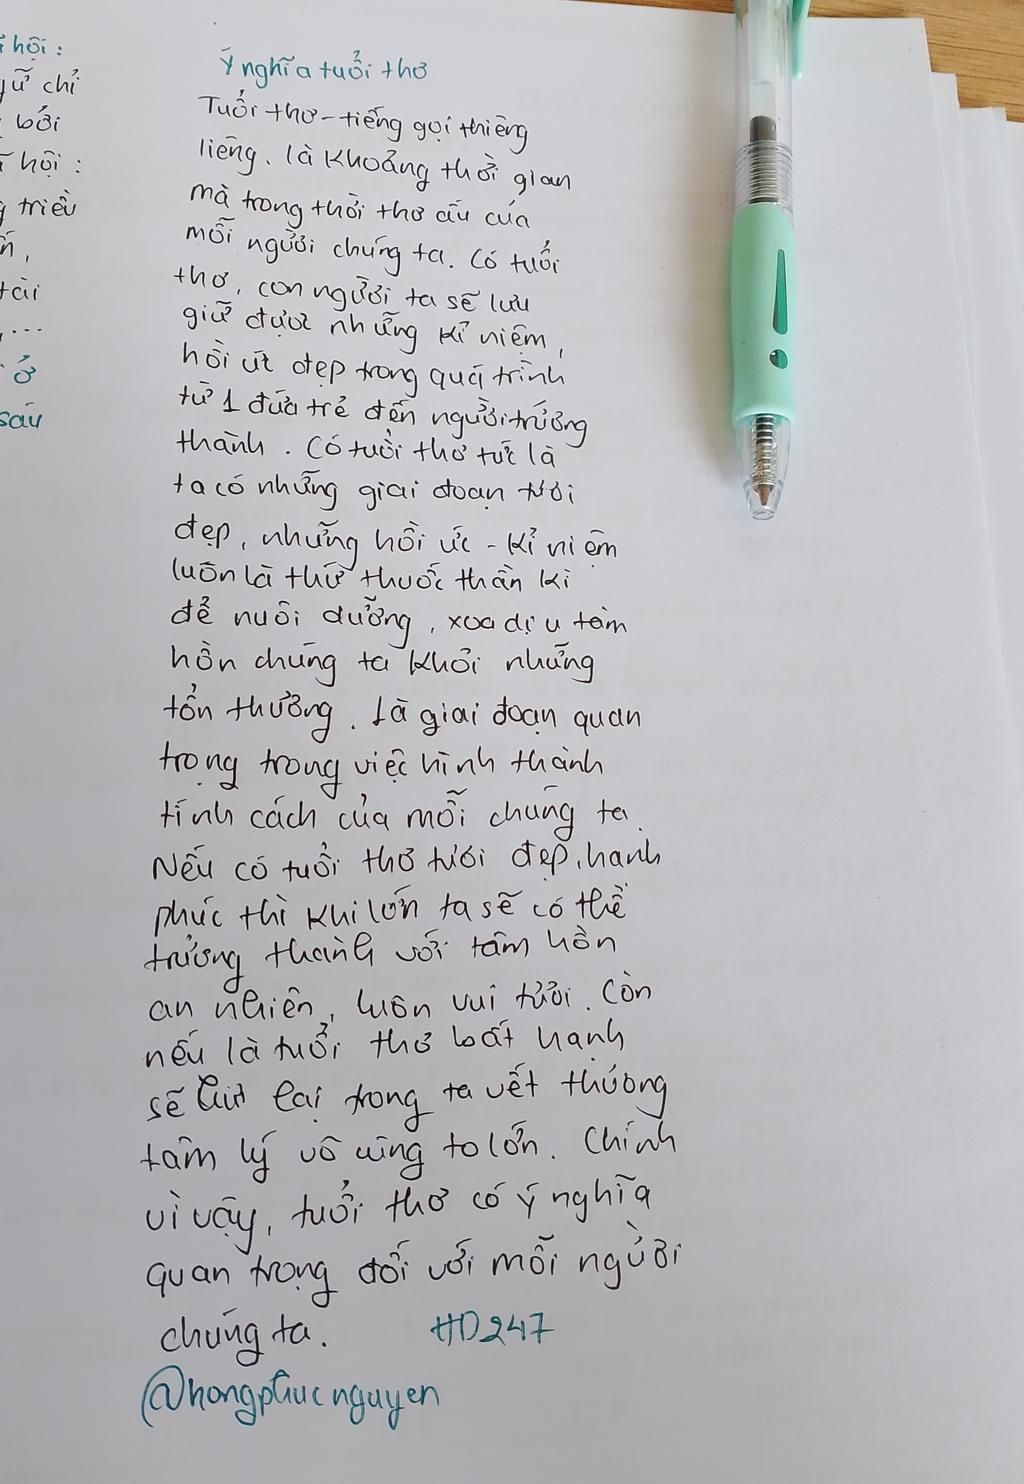 hội :
chỉ
bởi
hội :
triều
tài
...
ở
sáu
Ý nghĩa tuổi thơ
Tuổi thơ - tiếng gọi thiêng
liêng. là khoảng thời gian
mà trong thời thơ ấu của
mỗi người chúng ta. Có tuổi
thơ, con người ta sẽ lưu
giữ được những kỉ niệm,
hồi ức đẹp trong quá trình
từ 1 đứa trẻ đến người trưởng
thành. Có tuổi thơ tức là
ta có những giai đoạn tươi
đẹp, những hồi ức - kỉ niệm
luôn là thứ thuốc thần kì
để nuôi dưỡng, xoa dịu tâm
hồn chúng ta khỏi những
tổn thương. Là giai đoạn quan
trọng trong việc hình thành
tính cách của mỗi chúng ta.
Nếu có tuổi thơ tươi đẹp, hạnh
phúc thì khi lớn ta sẽ có thể
trưởng thành với tâm hồn
an nhiên, luôn vui tươi. Còn
nếu là tuổi thơ bất hạnh
sẽ lưu lại trong ta vết thương
tâm lý vô cùng to lớn. Chính
vì vậy, tuổi thơ có ý nghĩa
quan trọng đối với mỗi người
chúng ta. HD247
@hongphucnguyen